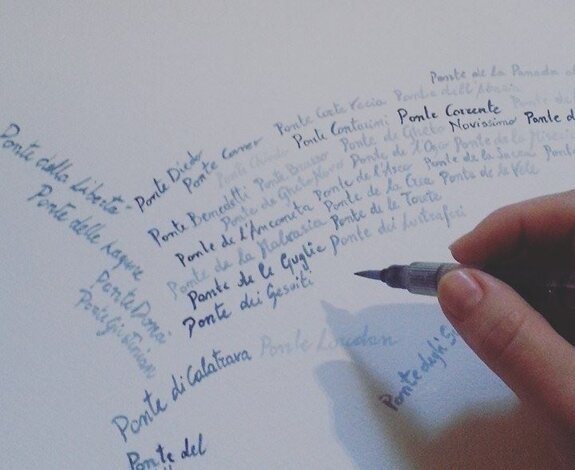 Ponte de la Panada
Ponte dell'Abazia
Ponte Corte Vecia
Ponte Corrente
Ponte Contarini
Ponte de Gheto Novissimo
Ponte Correr
Ponte Diedo
Ponte della Libertà
Ponte delle Lagune
Ponte Donà
Ponte Giustinian
Ponte Benedetti
Ponte Brazzo
Ponte de Gheto Novo
Ponte de l'Ogio
Ponte de la
Ponte de l'Anconeta
Ponte de l'Asco
Ponte de la Sacca
Ponte de la Malvasia
Ponte de la Crea
Ponte de le Vele
Ponte de le Guglie
Ponte de le Torete
Ponte dei Gesuiti
Ponte dei Lustraferi
Ponte di Calatrava
Ponte Loredan
Ponte degli
Ponte del